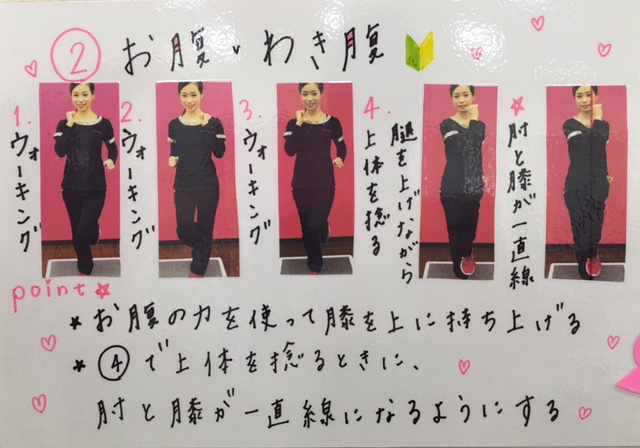 ② お腹・わき腹
1. ウォーキング
2. ウォーキング
3. ウォーキング
4. 腿を上げながら
上体を捻る
★肘と膝が一直線
point★
★お腹の力を使って膝を上に持ち上げる
★④で上体を捻るときに、
肘と膝が一直線になるようにする